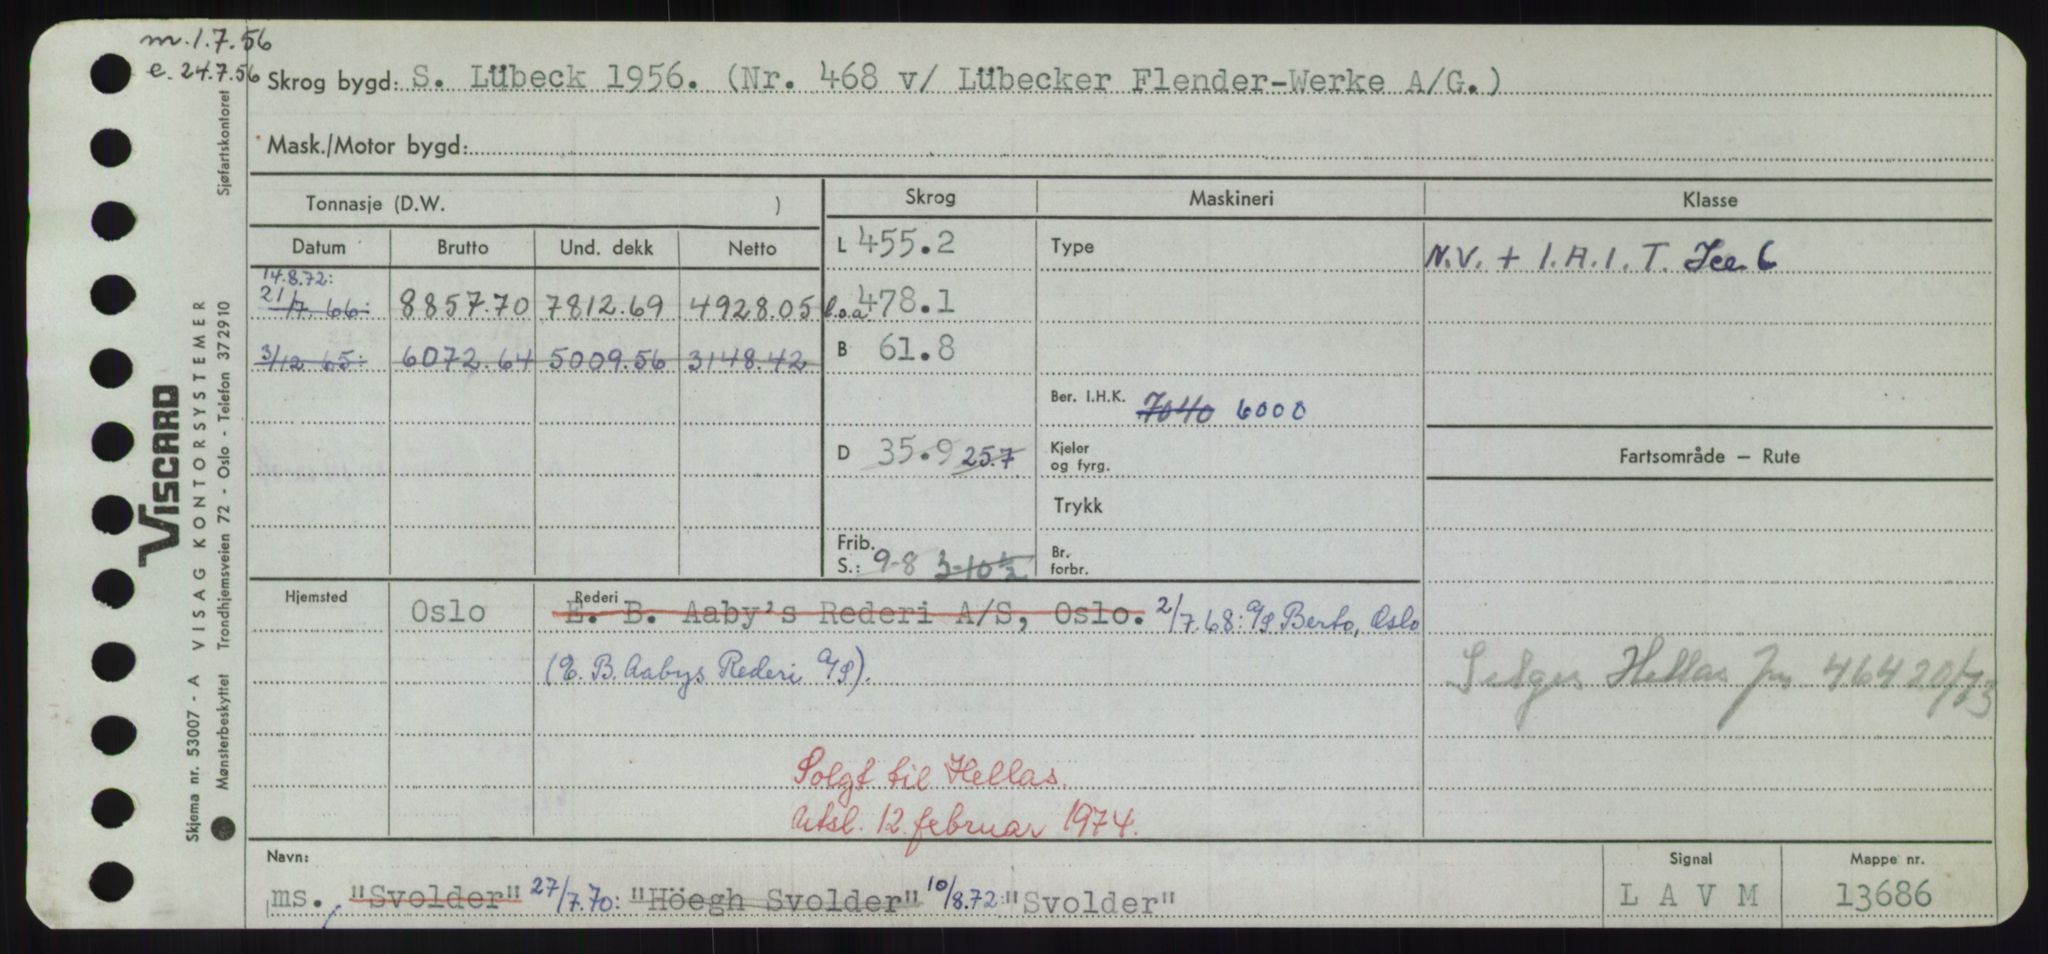 m. 1.7.56
e. 24.7.56
Skrog bygd: S. Lübeck 1956. (Nr. 468 v/ Lübecker Flender-Werke A/G.)
Mask./Motor bygd:
Tonnasje (D.W. ) Skrog Maskineri Klasse
Datum Brutto Und. dekk Netto
14.8.72:
21/7.66: 8857.70 7812.69 4928.05
3/12 65: 6072.64 5009.56 3148.42
L 455.2
l.o.a 478.1
B 61.8
D 35.9 25.7
Frib.
S.: 9-8 3-10 1/2
Type
Ber. I.H.K. 7040 6000
Kjeler
og fyrg.
Trykk
Br.
forbr.
N.V. + 1.A.1.T. Ice C
Fartsområde — Rute
Selges Hellas Jnr 464 20/ 73
Hjemsted Oslo
Rederi
E. B. Aaby's Rederi A/S, Oslo. 2/7.68: A/S Berto, Oslo
(E. B. Aabys Rederi A/S).
Solgt til Hellas.
Utsl. 12. februar 1974.
Navn:
ms. "Svolder" 27/7.70: "Höegh Svolder" 10/8.72: "Svolder"
Signal
L A V M
Mappe nr.
13686
Sjøfartskontoret
VISCARD
VISAG KONTORSYSTEMER
Trondhjemsveien 72 - Oslo - Telefon 372910
Skjema nr. 53007 - A
Mønsterbeskyttet